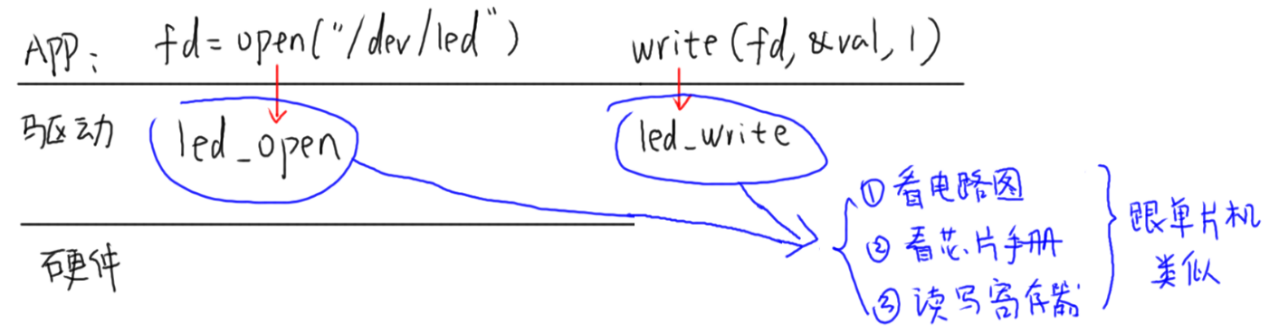 APP: fd=open("/dev/led") write(fd,&val,1)
驱动 led_open led_write
① 看电路图
② 看芯片手册
③ 读写寄存器
跟单片机
类似
硬件